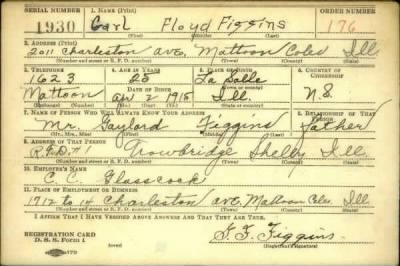 SERIAL NUMBER 1. NAME (Print) ORDER NUMBER
1930 Carl Floyd Figgins 176
(First) (Middle) (Last)
2. ADDRESS (Print)
2011 Charleston ave, Mattoon Coles Ill
(Number and street or R. F. D. number) (Town) (County) (State)
3. TELEPHONE 4. AGE IN YEARS 5. PLACE OF BIRTH 6. COUNTRY OF CITIZENSHIP
1623 25 La Salle
Mattoon DATE OF BIRTH
2 1915 Ill. U.S.
7. NAME OF PERSON WHO WILL ALWAYS KNOW YOUR ADDRESS 8. RELATIONSHIP OF THAT PERSON
Mr. Gaylord Figgins father
(Mr., Mrs., Miss) (First) (Middle) (Last)
9. ADDRESS OF THAT PERSON
R.F.D. #1 Trowbridge Shelby Ill
(Number and street or R. F. D. number) (Town) (County) (State)
10. EMPLOYER'S NAME
C. C. Glasscock
11. PLACE OF EMPLOYMENT OR BUSINESS
1712 to 14 Charleston ave, Mattoon Coles Ill
(Number and street or R. F. D. number) (Town) (County) (State)
I AFFIRM THAT I HAVE VERIFIED ABOVE ANSWERS AND THAT THEY ARE TRUE.
REGISTRATION CARD
D. S. S. Form 1 (over) Figgins
(Registrant's signature)